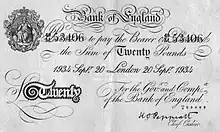 Bank of England
53406 to pay the Bearer 53406
the Sum of Twenty Pounds
1934 Sept. 20 London 20 Sept. 1934
For the Gov.r and Comp.a
Twenty
of the Bank of England
Chief Cashier